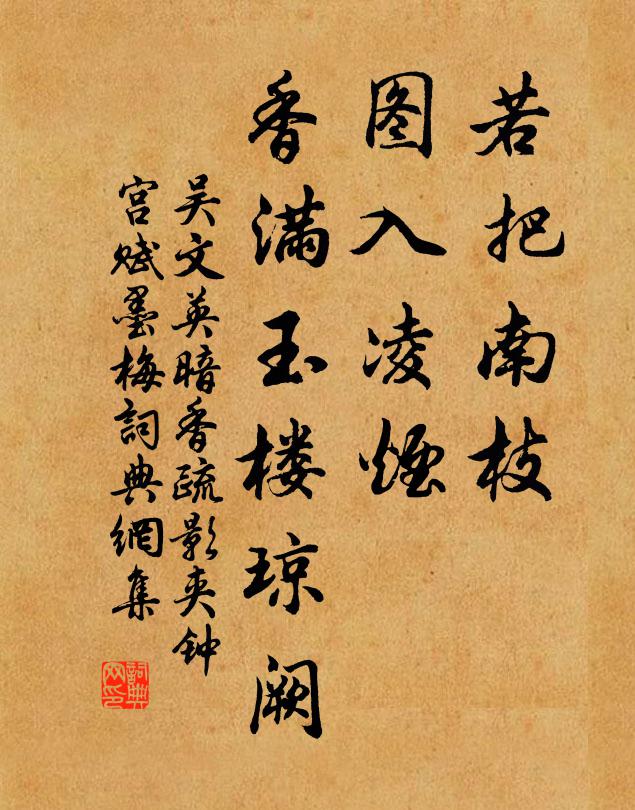 若把南枝
图入凌煙
香满玉楼琼阙
吴文英暗香疏影夹钟
宫赋墨梅詞典網集
詞典
网印